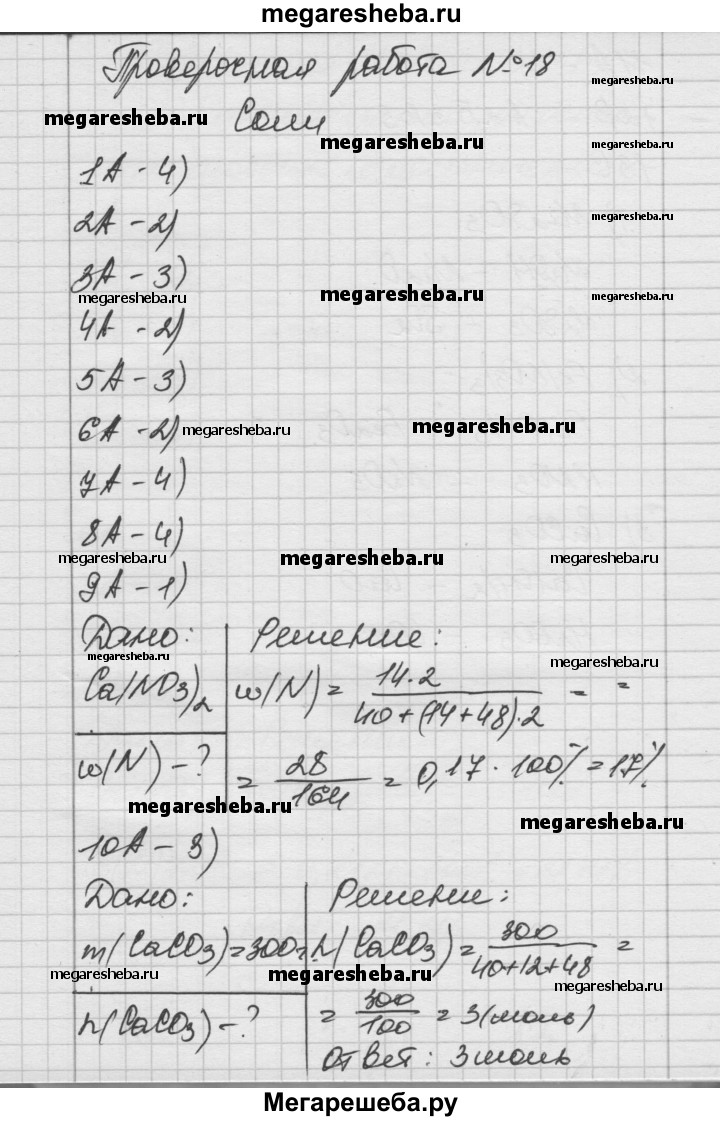 megaresheba.ru
Проверочная работа №18
megaresheba.ru
megaresheba.ru Соли megaresheba.ru megaresheba.ru
1А - 4)
2А - 2) megaresheba.ru
3А - 3)
megaresheba.ru megaresheba.ru megaresheba.ru
4А - 2)
5А - 3)
6А - 2) megaresheba.ru megaresheba.ru
7А - 4)
8А - 4)
megaresheba.ru megaresheba.ru megaresheba.ru
9А - 1)
Дано: Решение:
megaresheba.ru megaresheba.ru
Ca(NO3)2 w(N) = 14·2 / 40+(14+48)·2 = =
w(N) - ? = 28 / 164 = 0,17 · 100% = 17%
megaresheba.ru megaresheba.ru
10А - 3)
Дано: Решение:
m(CaCO3)=300г. n(CaCO3) = 300 / 40+12+48 =
megaresheba.ru megaresheba.ru megaresheba.ru
n(CaCO3) - ? = 300 / 100 = 3(моль)
Ответ: 3моль
Мегарешеба.ру